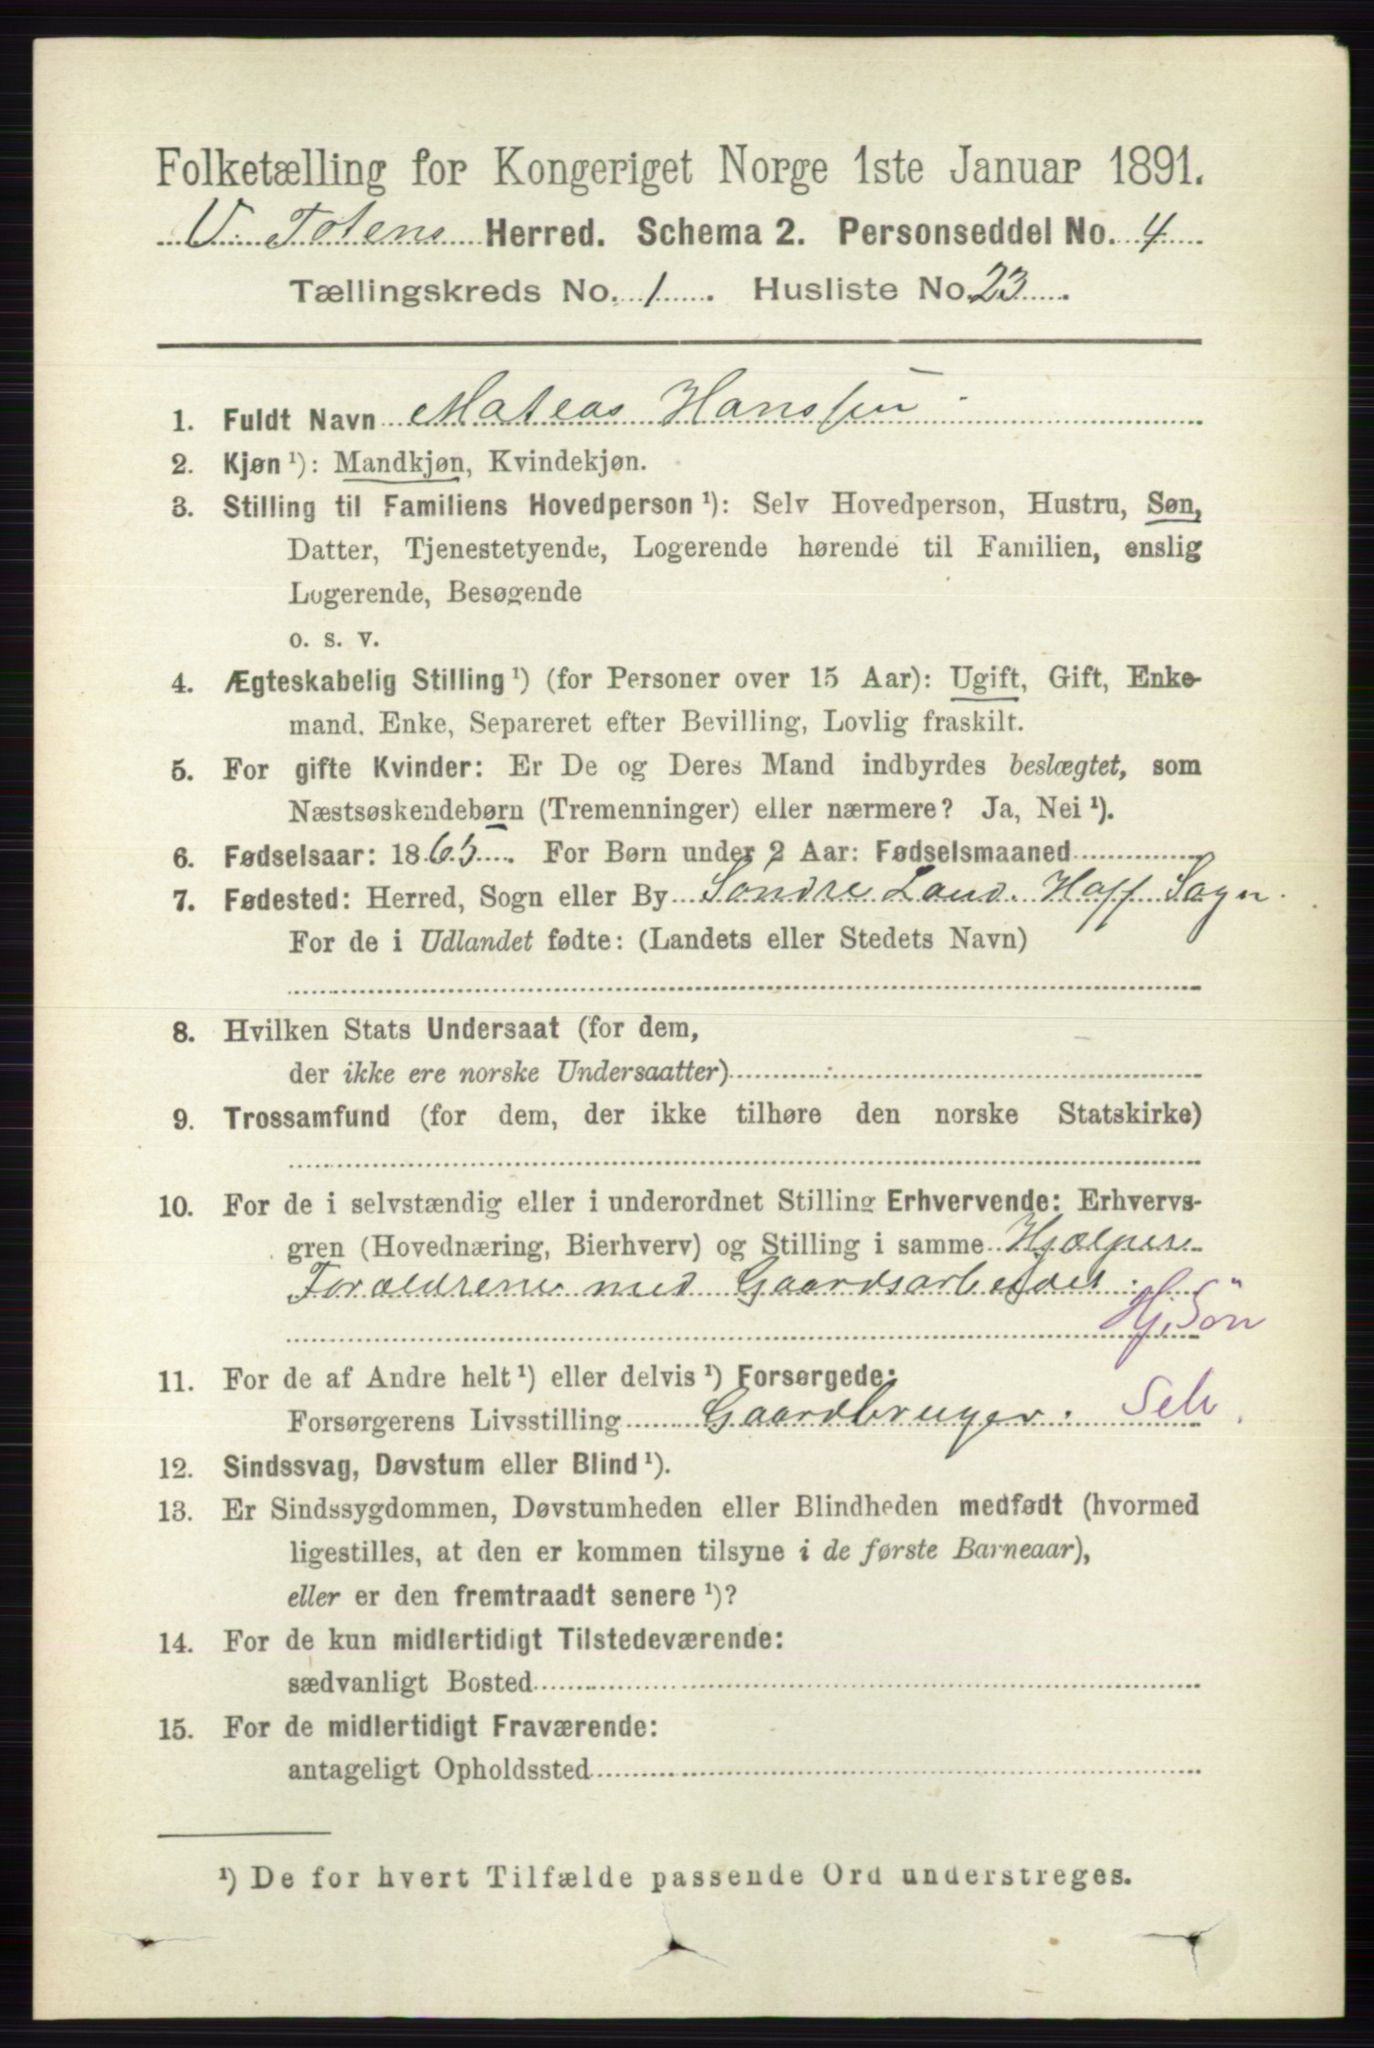 Folketælling for Kongeriget Norge 1ste Januar 1891.
V. Totens Herred. Schema 2. Personseddel No. 4
Tællingskreds No. 1. Husliste No. 23.
1. Fuldt Navn Mateas Hanssen
2. Kjøn ¹): Mandkjøn, Kvindekjøn.
3. Stilling til Familiens Hovedperson ¹): Selv Hovedperson, Hustru, Søn,
Datter, Tjenestetyende, Logerende hørende til Familien, enslig
Logerende, Besøgende
o. s. v.
4. Ægteskabelig Stilling ¹) (for Personer over 15 Aar): Ugift, Gift, Enke-
mand, Enke, Separeret efter Bevilling, Lovlig fraskilt.
5. For gifte Kvinder: Er De og Deres Mand indbyrdes beslægtet, som
Næstsøskendebørn (Tremenninger) eller nærmere? Ja, Nei ¹).
6. Fødselsaar: 1865. For Børn under 2 Aar: Fødselsmaaned
7. Fødested: Herred, Sogn eller By Søndre Land. Hoff Sogn.
For de i Udlandet fødte: (Landets eller Stedets Navn)
8. Hvilken Stats Undersaat (for dem,
der ikke ere norske Undersaatter)
9. Trossamfund (for dem, der ikke tilhøre den norske Statskirke)
10. For de i selvstændig eller i underordnet Stilling Erhvervende: Erhvervs-
gren (Hovednæring, Bierhverv) og Stilling i samme Hjælper
Forældrene med Gaardsarbeidet.
Hj. Søn
11. For de af Andre helt ¹) eller delvis ¹) Forsørgede:
Forsørgerens Livsstilling Gaardbruger. Selv.
12. Sindssvag, Døvstum eller Blind ¹).
13. Er Sindssygdommen, Døvstumheden eller Blindheden medfødt (hvormed
ligestilles, at den er kommen tilsyne i de første Barneaar),
eller er den fremtraadt senere ¹)?
14. For de kun midlertidigt Tilstedeværende:
sædvanligt Bosted
15. For de midlertidigt Fraværende:
antageligt Opholdssted
¹) De for hvert Tilfælde passende Ord understreges.